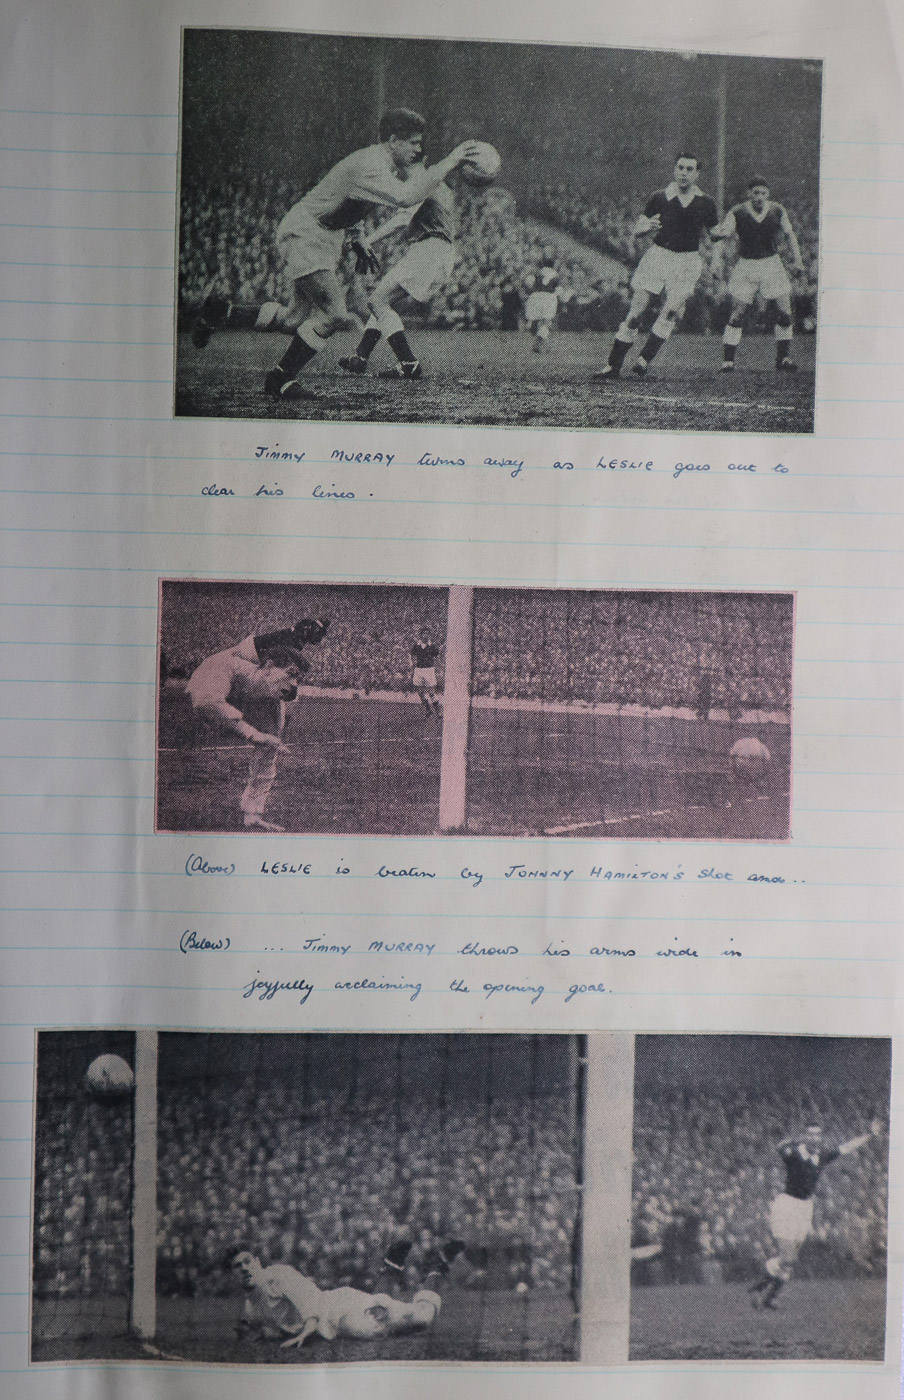 Jimmy MURRAY turns away as LESLIE goes out to
clear his lines.
(Above) LESLIE is beaten by JONNNY HAMILTON'S shot and..
(Below) ... Jimmy MURRAY throws his arms wide in
joyfully acclaiming the opening goal.